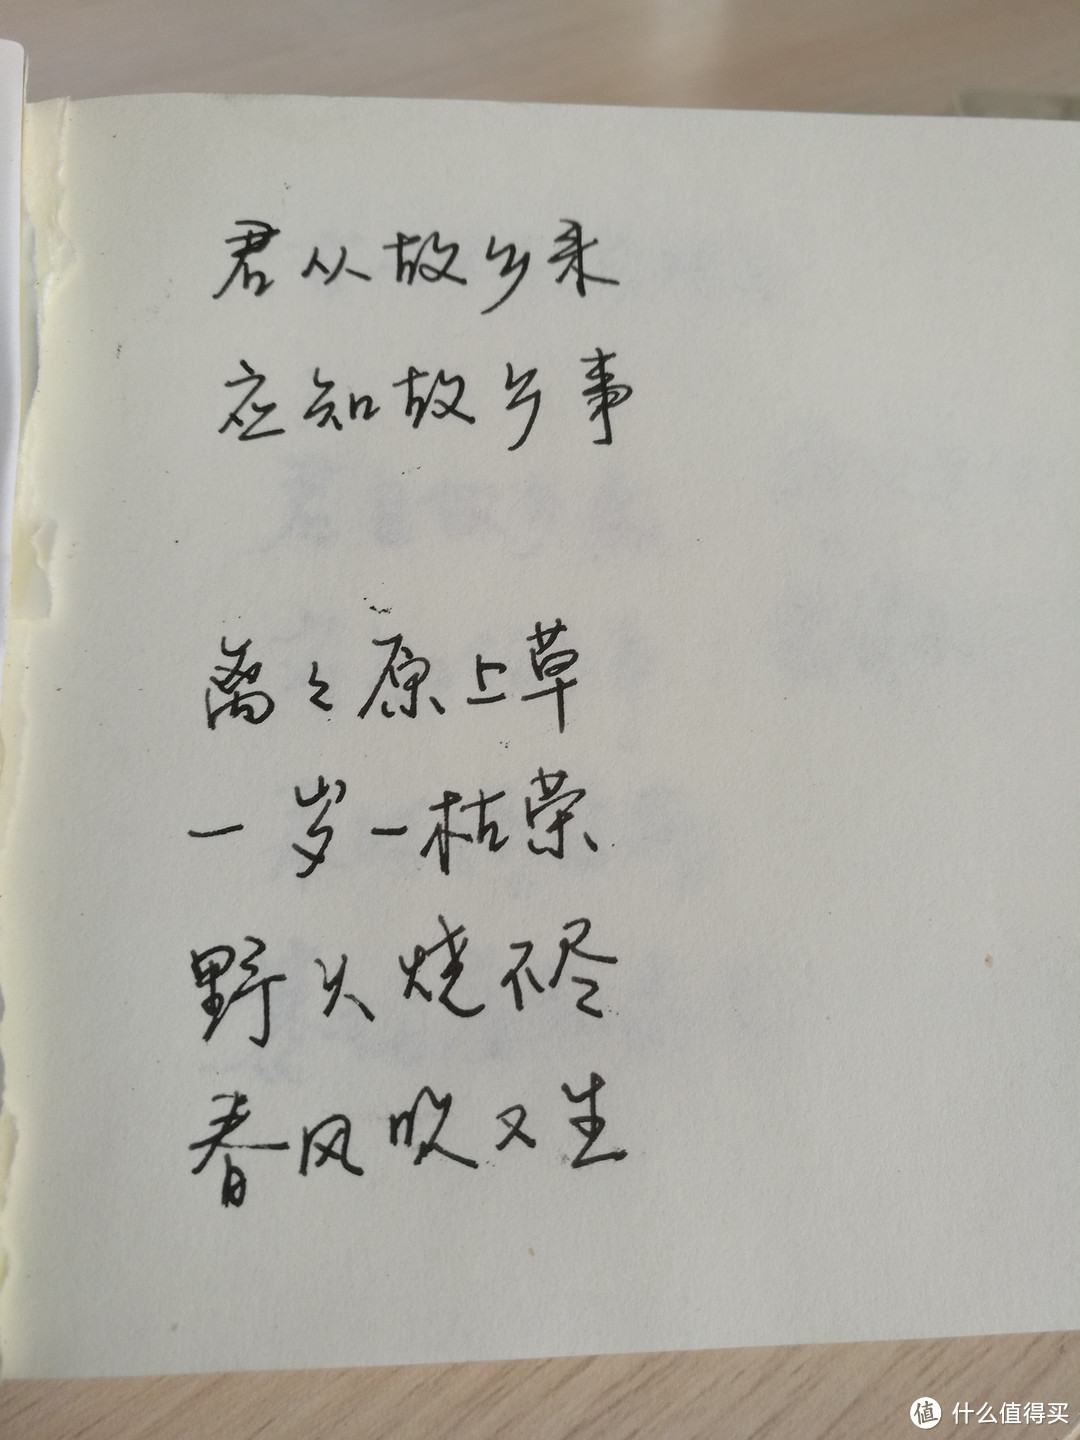 君从故乡来
应知故乡事
离々原上草
一岁一枯荣
野火烧不尽
春风吹又生
值 什么值得买